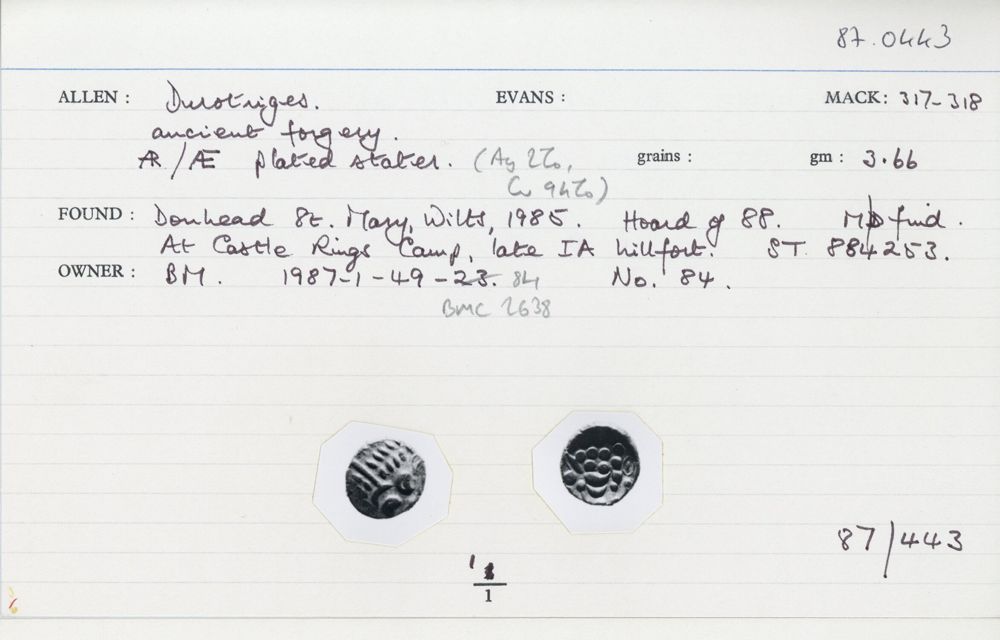 87.0443
ALLEN : Durotriges. EVANS : MACK: 317-318
ancient forgery.
AR/Æ plated stater. (Ag 2%, grains : gm : 3.66
Cu 94%)
FOUND : Donhead St. Mary, Wilts, 1985. Hoard of 88. MD find.
At Castle Rings Camp, late IA hillfort. ST 884253.
OWNER : BM. 1987-1-49-23. 84 No. 84.
BMC 2638
87/443
1
1